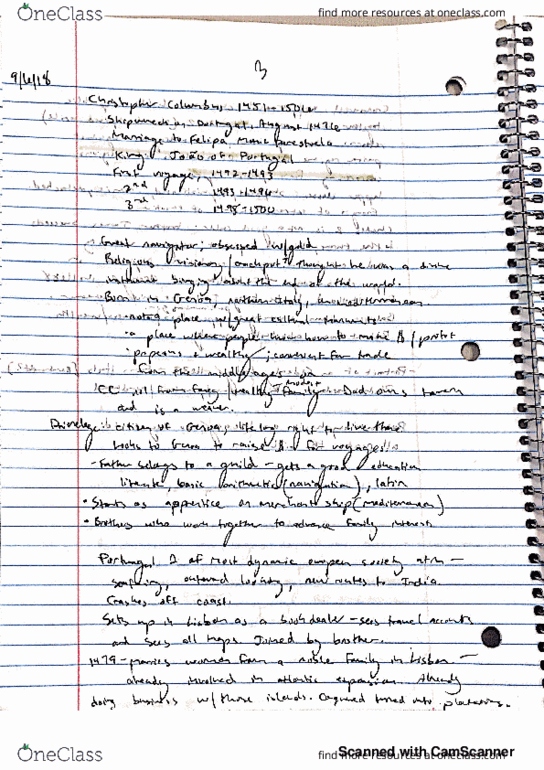 OneClass
find more resources at oneclass.com
3
9/6/18
Christopher Columbus, 1451-1506
Shipwreck in Portugal, August 1476
Marriage to Felipa Moniz Perestrela
King João of Portugal
First voyage, 1492-1493
2nd 1493-1496
3rd 1498-1500
Great navigator; obsessed w/gold
Religious vision / thought he was a divine
instrument bringing about the end of the world.
Born in Genoa, northern Italy,
not a place w/great cultural
a place where people know how to make $ / profit
prosperous & wealthy; convenient for trade
from the middle ages on
CC not from fancy / wealthy family Dad owns tavern
and is a weaver.
citizen of Genoa, lifelong right to live there
looks to Genoa to raise $ for voyages
- Father belongs to a guild - gets a good education
literate, basic arithmetic (navigation), latin
• Starts as apprentice on merchant ship (mediterranean)
• Brothers who work together to advance family interests
Portugal 1 of most dynamic european society atm -
seafaring, outward looking, new routes to India.
Crashes off coast.
Sets up in Lisbon as a book dealer - sees travel accounts
and sees all maps. Joined by brother.
1479 - marries woman from a noble family in Lisbon. -
already involved in atlantic expansion. Already
doing business w/ those islands. turned into plantations.
OneClass
find more resources at oneclass.com
Scanned with CamScanner